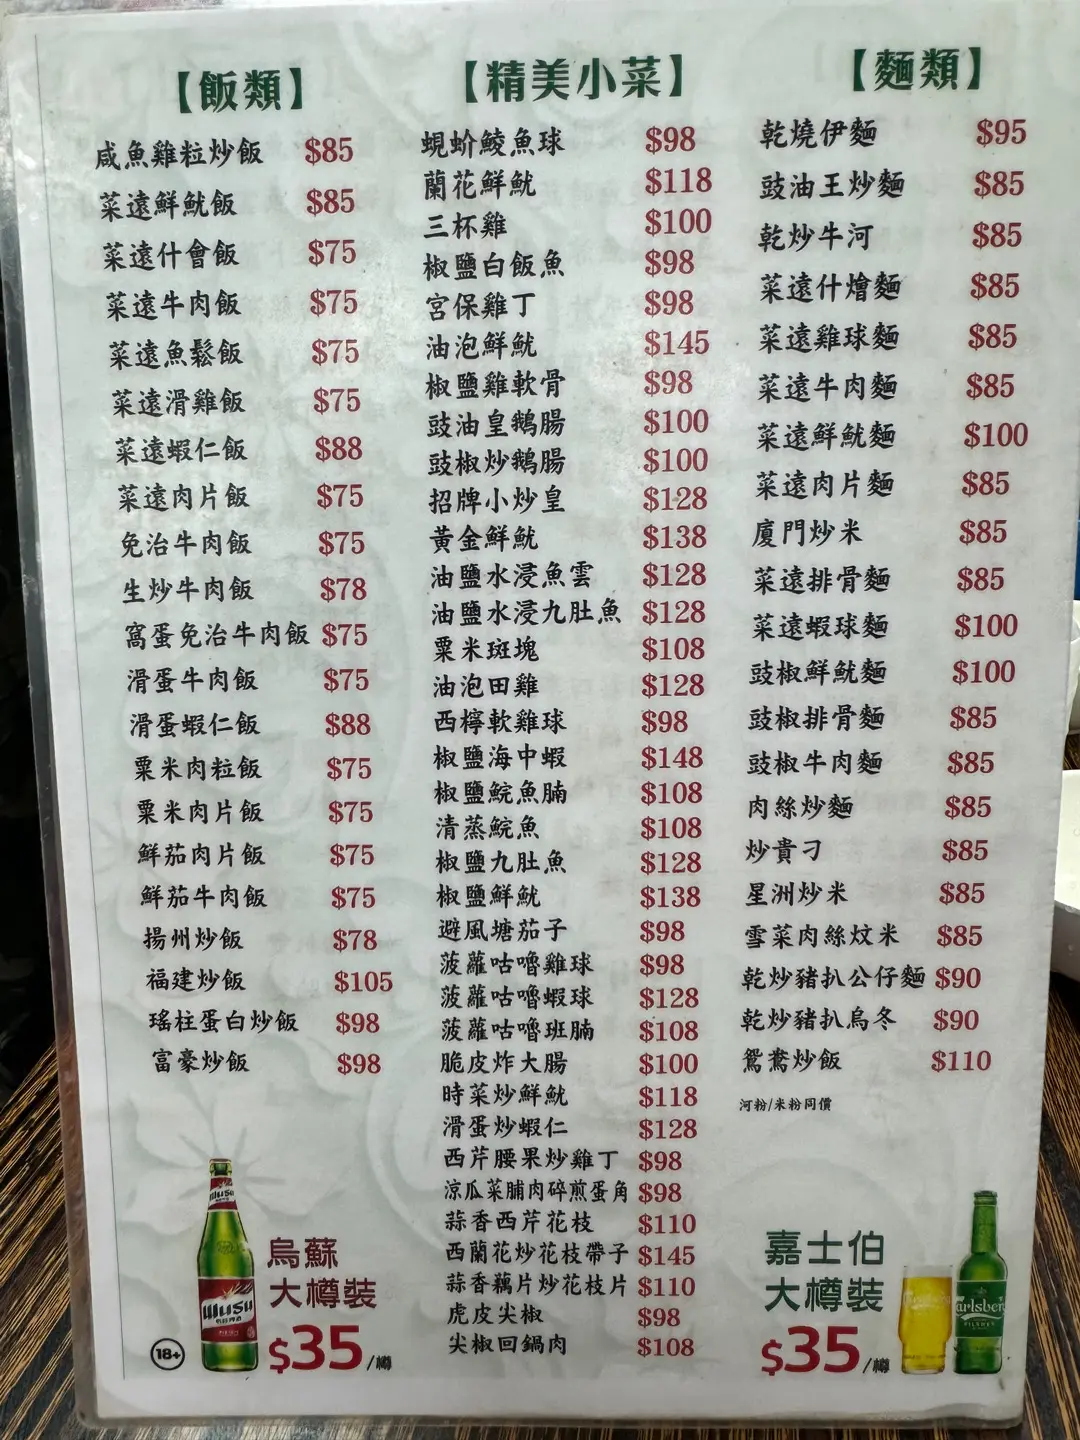 【飯類】
咸魚雞粒炒飯 $85
菜遠鮮魷飯 $85
菜遠什會飯 $75
菜遠牛肉飯 $75
菜遠魚鬆飯 $75
菜遠滑雞飯 $75
菜遠蝦仁飯 $88
菜遠肉片飯 $75
免治牛肉飯 $75
生炒牛肉飯 $78
窩蛋免治牛肉飯 $75
滑蛋牛肉飯 $75
滑蛋蝦仁飯 $88
粟米肉粒飯 $75
粟米肉片飯 $75
鮮茄肉片飯 $75
鮮茄牛肉飯 $75
揚州炒飯 $78
福建炒飯 $105
瑤柱蛋白炒飯 $98
富豪炒飯 $98
【精美小菜】
蜆蚧鯪魚球 $98
蘭花鮮魷 $118
三杯雞 $100
椒鹽白飯魚 $98
宮保雞丁 $98
油泡鮮魷 $145
椒鹽雞軟骨 $98
豉油皇鵝腸 $100
豉椒炒鵝腸 $100
招牌小炒皇 $128
黃金鮮魷 $138
油鹽水浸魚雲 $128
油鹽水浸九肚魚 $128
粟米斑塊 $108
油泡田雞 $128
西檸軟雞球 $98
椒鹽海中蝦 $148
椒鹽鯇魚腩 $108
清蒸鯇魚 $108
椒鹽九肚魚 $128
椒鹽鮮魷 $138
避風塘茄子 $98
菠蘿咕嚕雞球 $98
菠蘿咕嚕蝦球 $128
菠蘿咕嚕班腩 $108
脆皮炸大腸 $100
時菜炒鮮魷 $118
滑蛋炒蝦仁 $128
西芹腰果炒雞丁 $98
涼瓜菜脯肉碎煎蛋角 $98
蒜香西芹花枝 $110
西蘭花炒花枝帶子 $145
蒜香藕片炒花枝片 $110
虎皮尖椒 $98
尖椒回鍋肉 $108
【麵類】
乾燒伊麵 $95
豉油王炒麵 $85
乾炒牛河 $85
菜遠什燴麵 $85
菜遠雞球麵 $85
菜遠牛肉麵 $85
菜遠鮮魷麵 $100
菜遠肉片麵 $85
廈門炒米 $85
菜遠排骨麵 $85
菜遠蝦球麵 $100
豉椒鮮魷麵 $100
豉椒排骨麵 $85
豉椒牛肉麵 $85
肉絲炒麵 $85
炒貴刁 $85
星洲炒米 $85
雪菜肉絲炆米 $85
乾炒豬扒公仔麵 $90
乾炒豬扒烏冬 $90
鴛鴦炒飯 $110
河粉/米粉同價
烏蘇
大樽裝
$35/樽
18+
Wusu
Wusu
嘉士伯
大樽裝
$35/樽
Carlsberg
PILSNER